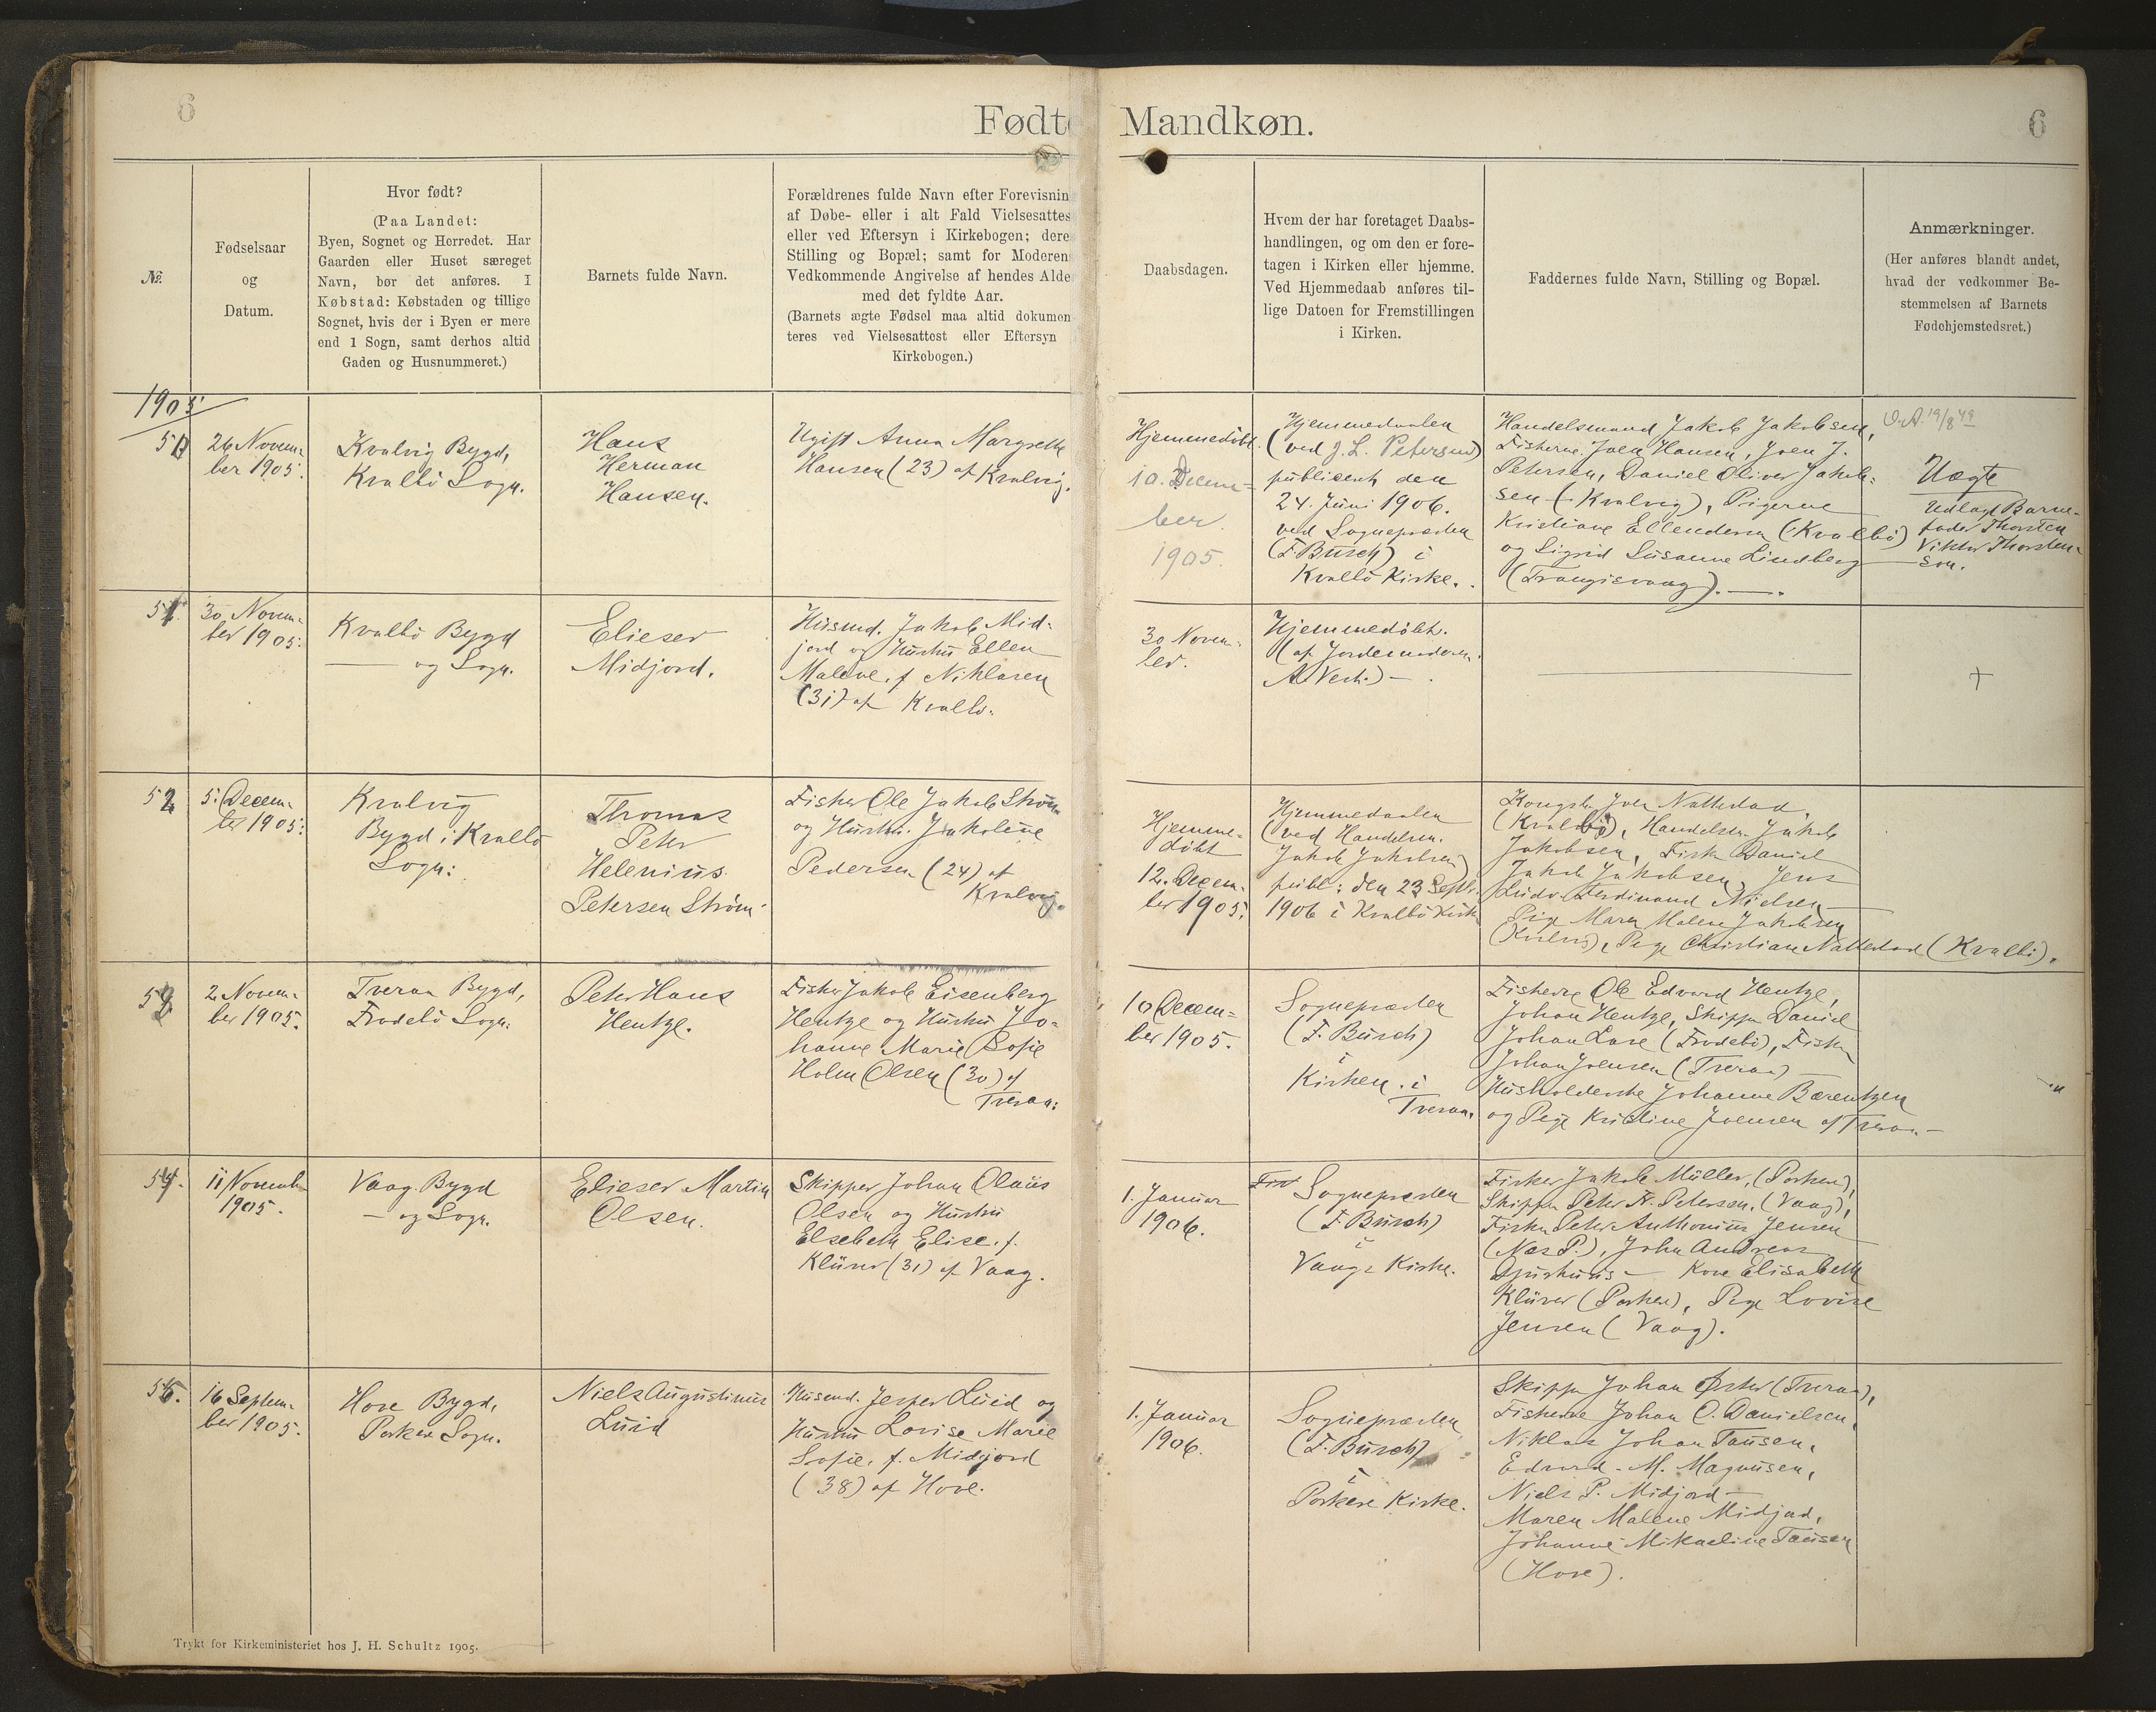 6
Fødte Mandkøn.
6
№
Fødselsaar
og
Datum.
Hvor født?
(Paa Landet:
Byen, Sognet og Herredet. Har
Gaarden eller Huset særeget
Navn, bør det anføres. I
Købstad: Købstaden og tillige
Sognet, hvis der i Byen er mere
end 1 Sogn, samt derhos altid
Gaden og Husnummeret.)
Barnets fulde Navn.
Forældrenes fulde Navn efter Forevisnin
af Døbe- eller i alt Fald Vielsesattes
eller ved Eftersyn i Kirkebogen; dere
Stilling og Bopæl; samt for Moderen
Vedkommende Angivelse af hendes Alde
med det fyldte Aar.
(Barnets ægte Fødsel maa altid dokumen
teres ved Vielsesattest eller Eftersyn
Kirkebogen.)
Daabsdagen.
Hvem der har foretaget Daabs-
handlingen, og om den er fore-
tagen i Kirken eller hjemme.
Ved Hjemmedaab anføres til-
lige Datoen for Fremstillingen
i Kirken.
Faddernes fulde Navn, Stilling og Bopæl.
Anmærkninger.
(Her anføres blandt andet,
hvad der vedkommer Be-
stemmelsen af Barnets
Fødehjemstedsret.)
1905
26 Novem-
ber 1905.
Kvalvig Bygd,
Kvalbö Sogn.
Hans
Herman
Hansen.
Ugift Anna Margrethe
Hansen (23) af Kvalvig.
Hjemmedöbt.
10. Decem-
ber
1905.
Hjemmedaaben
(ved J. L. Petersen)
publiceret den
24. Juni 1906.
ved Sognepræsten
(F. Busch) i
Kvalbö Kirke.
Handelsmand Jakob Jakobsen,
Fiskerne Joen Hansen, Joen J.
Petersen, Daniel Oliver Jakob-
sen (Kvalvig), Pigerne
Kristiane Ellendersen (Kvalbö)
og Sigrid Susanne Lindberg
(Trangisvaag).
19/8 49
Uægte
Udlagt Barne-
fader Thorsten
Viktor Thorsten-
son.
30 Novem-
ber 1905.
Kvalbö Bygd
og Sogn.
Elieser
Midjord.
Husmd. Jakob Mid-
jord og Hustru Ellen
Malene, f. Niklasen
(31) af Kvalbö.
30 Novem-
ber.
Hjemmedöbt.
(af Jordemoderen
A Vest.)
+
52
5. Decem-
ber 1905.
Kvalvig
Bygd i Kvalbö
Sogn.
Thomas
Peter
Helenius
Petersen Ström
Fisker Ole Jakob Ström
og Hustru Jakobine
Pedersen (24) af
Kvalvig.
Hjemme-
döbt
12. Decem-
ber 1905.
Hjemmedaaben
(ved Handelsm.
Jakob Jakobsen)
publ. den 23 Septb.
1906 i Kvalbö Kirke
Kongsb. Joen Nattestad,
(Kvalbö), Handelsm. Jakob
Jakobsen, Fisker Daniel
Jakob Jakobsen, Jens
Ludv. Ferdinand Nielsen
Pige Maren Malene Jakobsen
(Kvalvig), Pige Christiane Nattestad (Kvalbö).
2 Novem-
ber 1905.
Tveraa Bygd,
Frodebö Sogn.
Peter Hans
Hentze.
Fisker Jakob Eisenberg
Hentze og Hustru Jo-
hanne Marie Sofie
Holm Olsen (30) af
Tveraa.
10 Decem-
ber 1905.
Sognepræsten
(F. Busch)
i
Kirken i
Tveraa.
Fiskerne Ole Edvard Hentze,
Johan Hentze, Skipper Daniel
Johan Lase (Frodebö), Fisker
Johan Joensen (Tveraa)
Husholderske Johanne Bærentzen
og Pige Kristine Joensen af Tveraa
54.
11 Novemb.
1905.
Vaag Bygd
og Sogn.
Elieser Martin
Olsen.
Skipper Johan Olaus
Olsen og Hustru
Elsebeth Elise, f.
Klüver (31) af Vaag.
1. Januar
1906.
Sognepræsten
(F. Busch)
i
Vaags Kirke.
Fisker Jakob Müller, (Porkere),
Skipper Peter K. Petersen, (Vaag),
Fisker Peter Anthonius Jensen
(Næs P.), John Andreas
Kone Elisabeth
Klüver (Porkere), Pige Lovise
Jensen (Vaag).
55.
16 Septem-
ber 1905.
Hove Bygd,
Porkere Sogn.
Niels Augustinus
Luid
Husmd. Jesper Luid og
Hustru Lovise Marie
Sofie, f. Midjord
(38) af Hove.
1. Januar
1906.
Sognepræsten
(F. Busch)
i
Porkere Kirke.
Skipper Johan Öster (Tveraa),
Fiskerne Johan O. Danielsen,
Niklas Johan Tausen,
Edvard M. Magnusen,
Niels P. Midjord
Maren Malene Midjord,
Johanne Mikaeline Tausen
(Hove).
Trykt for Kirkeministeriet hos J. H. Schultz 1905.